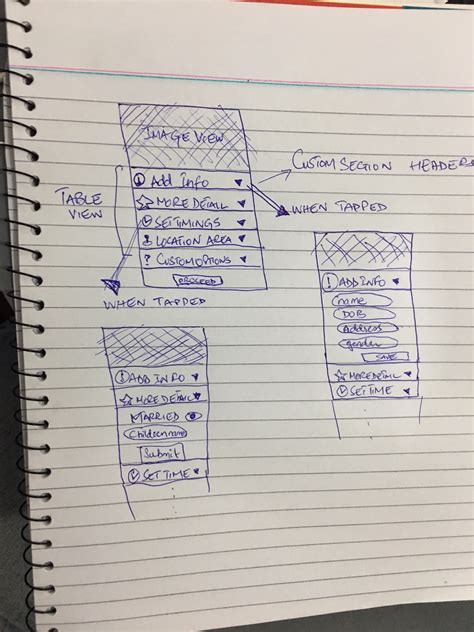 IMAGE VIEW
CUSTOM SECTION HEADER
TABLE VIEW
! Add Info
MORE DETAIL
SET TIMINGS
LOCATION AREA
? CUSTOM OPTIONS
PROCEED
WHEN TAPPED
WHEN TAPPED
! ADD INFO
name
DOB
Address
gender
SAVE
MORE DETAIL
SET TIME
! ADD INFO
MORE DETAIL
MARRIED
Children name
Submit
SET TIME